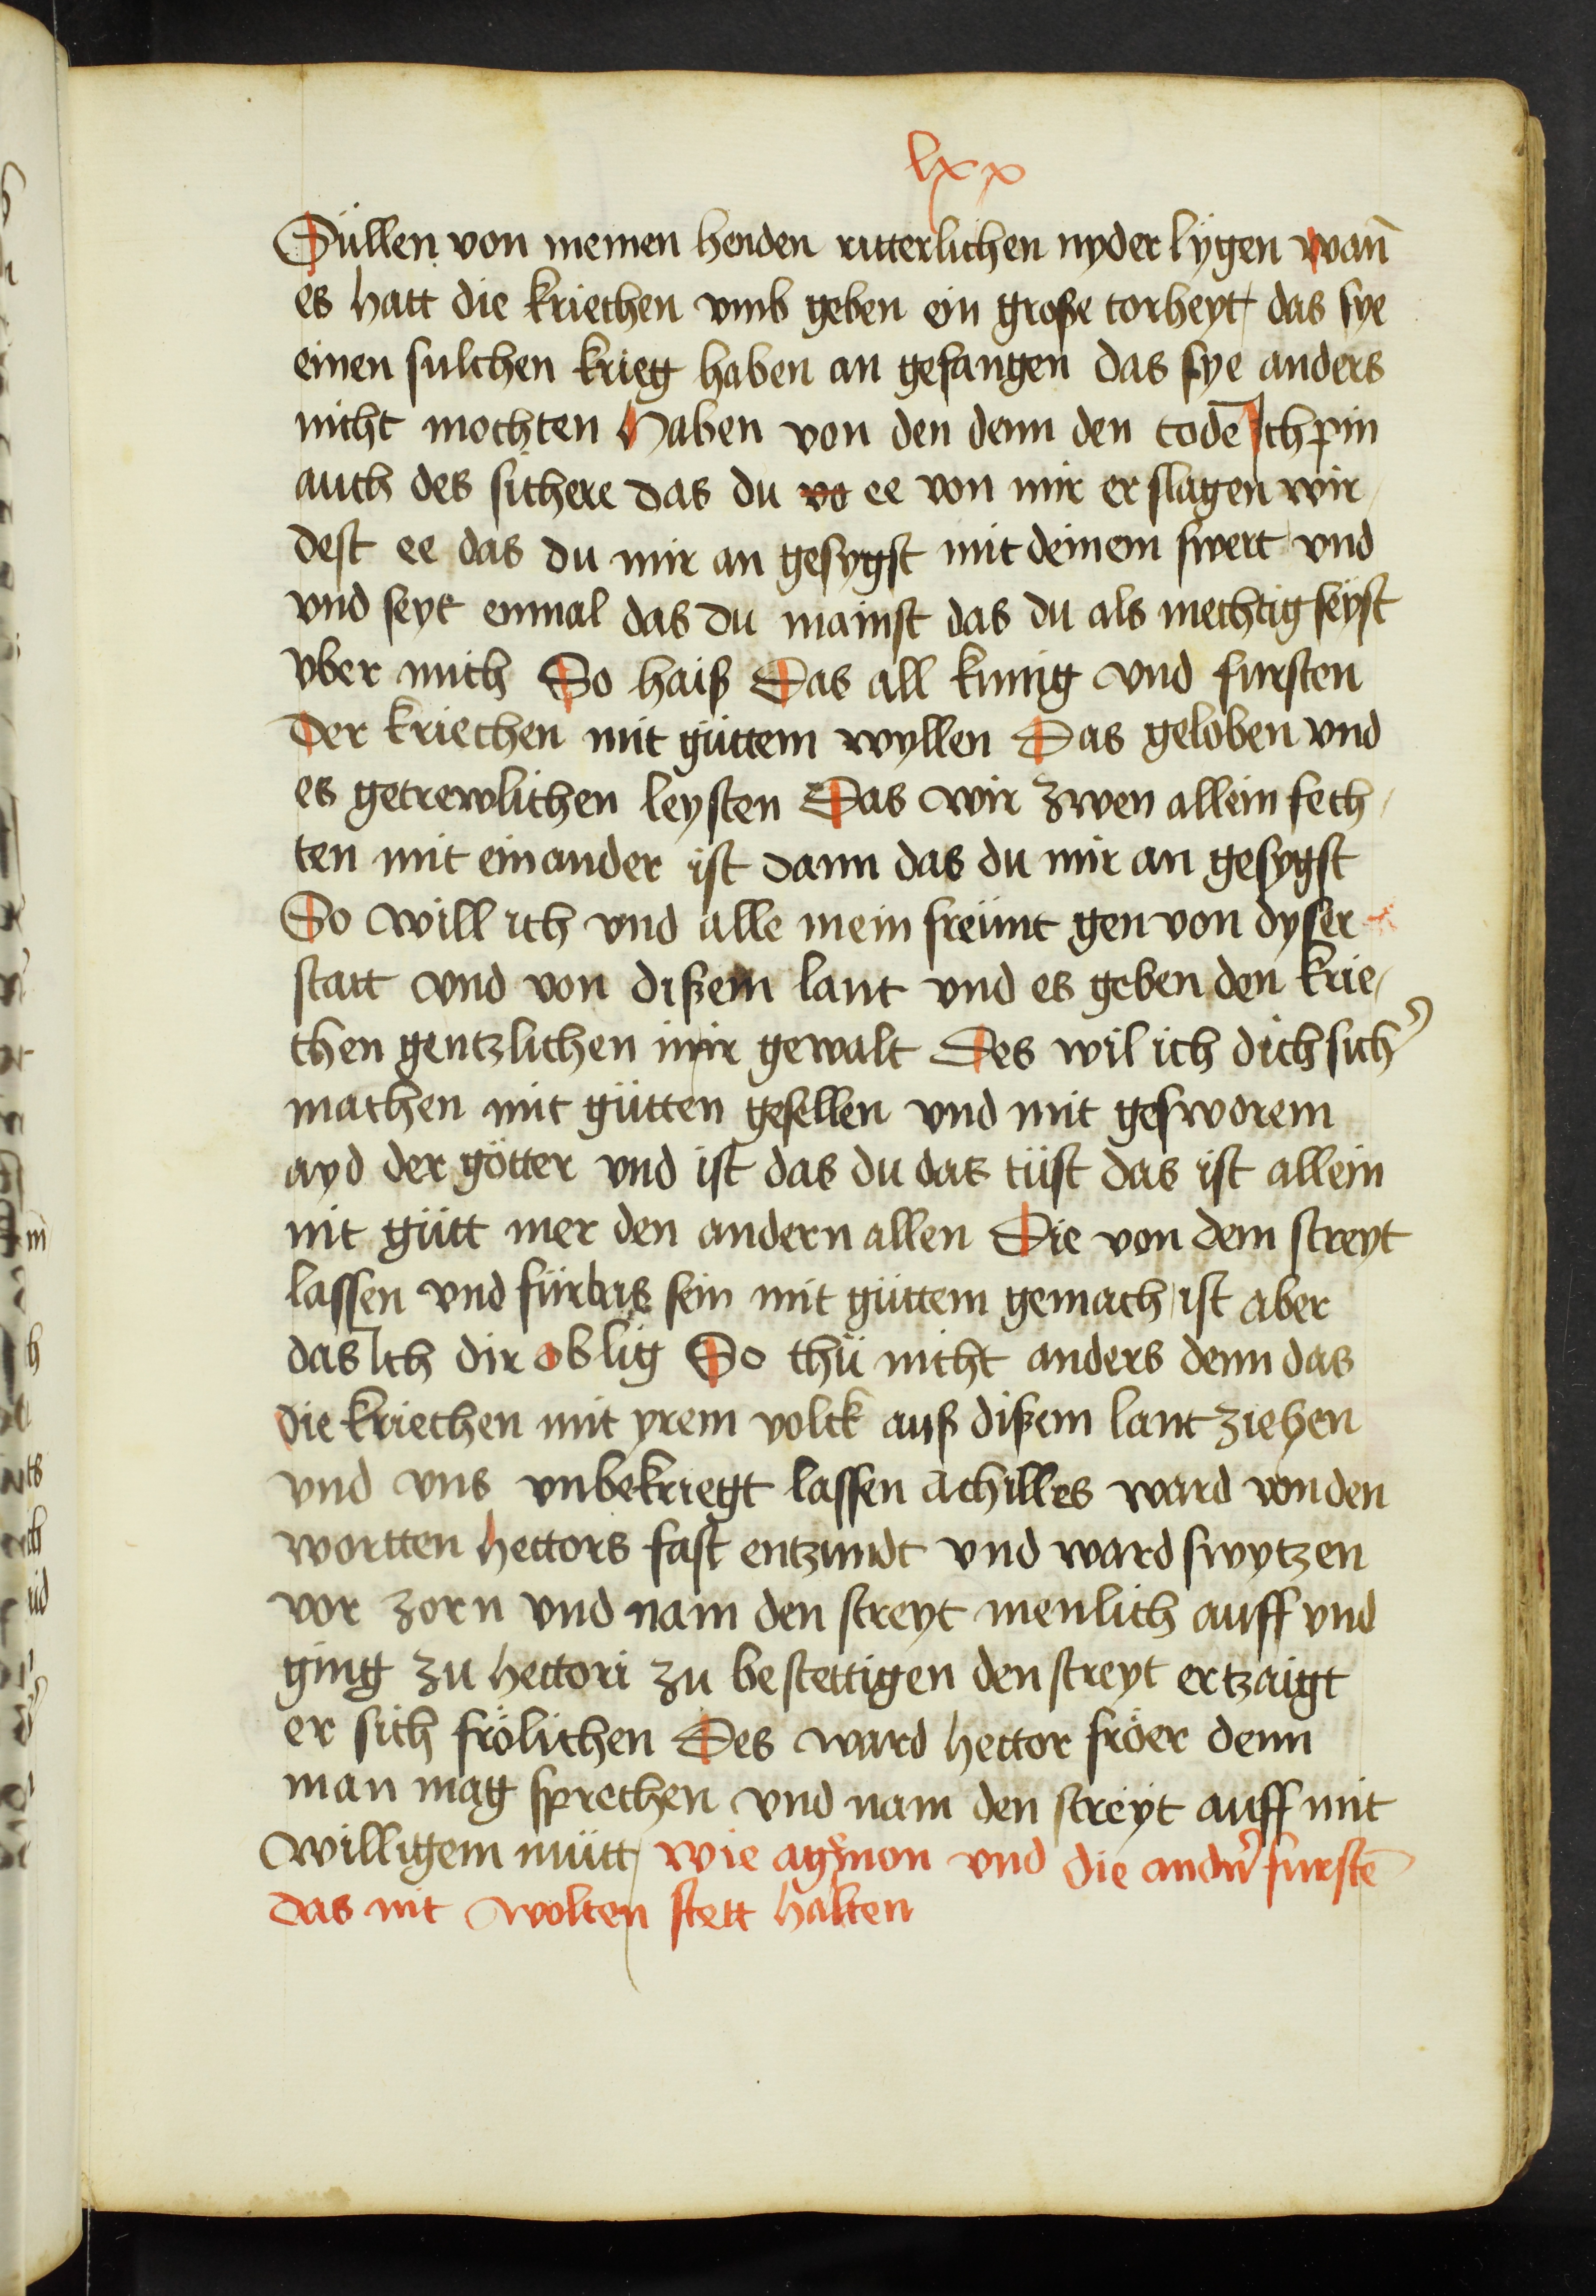 lxx
Süllen von meinen henden ritterlichen nyder lygen wan̄
es hatt die kriechen vmb geben ein große torheyt das sye
einen sulchen krieg haben an gefangen das sye anders
nicht mochten haben von den denn den tode Ich pin
auch des sichere das du vo ee von mir er slagen wir
dest ee das du mir an gesygst mit deinem swert vnd
vnd seyt einmal das du mainst das du als mechtig seyst
vber mich So haiß Das all kunig vnd fursten
der kriechen mit güttem wyllen Das geloben vnd
es getrewlichen leysten Das wir zwen allein fech
ten mit einander ist dann das du mir an gesygst
So will ich vnd alle mein freünt gen von dyser
statt vnd von dißem lant vnd es geben den krie
chen gentzlichen inir gewalt Des wil ich dich sich᾽
machen mit gütten gesellen vnd mit gesworem
ayd der götter vnd ist das du das tüst das ist allein
nit gütt mer den andern allen Die von dem streyt
lassen vnd fürbas sein mit güttem gemach ist aber
das Ich dir oblig So thü nicht anders denn das
die kriechen mit yrem volck auß dißem lant ziehen
vnd vns vnbekriegt lassen achilles ward von den
wortten hectors fast entzundt vnd ward swytzen
vor zorn vnd nam den streyt menlich auff vnd
ging zu hectori zu bestettigen den streyt ertzaigt
er sich frölichen Des ward hector fröer denn
man mag sprechen vnd nam den streyt auff mit
willigem mütt wie agm̄non vnd die andn᾽ furstē
das nit wolten stett halten